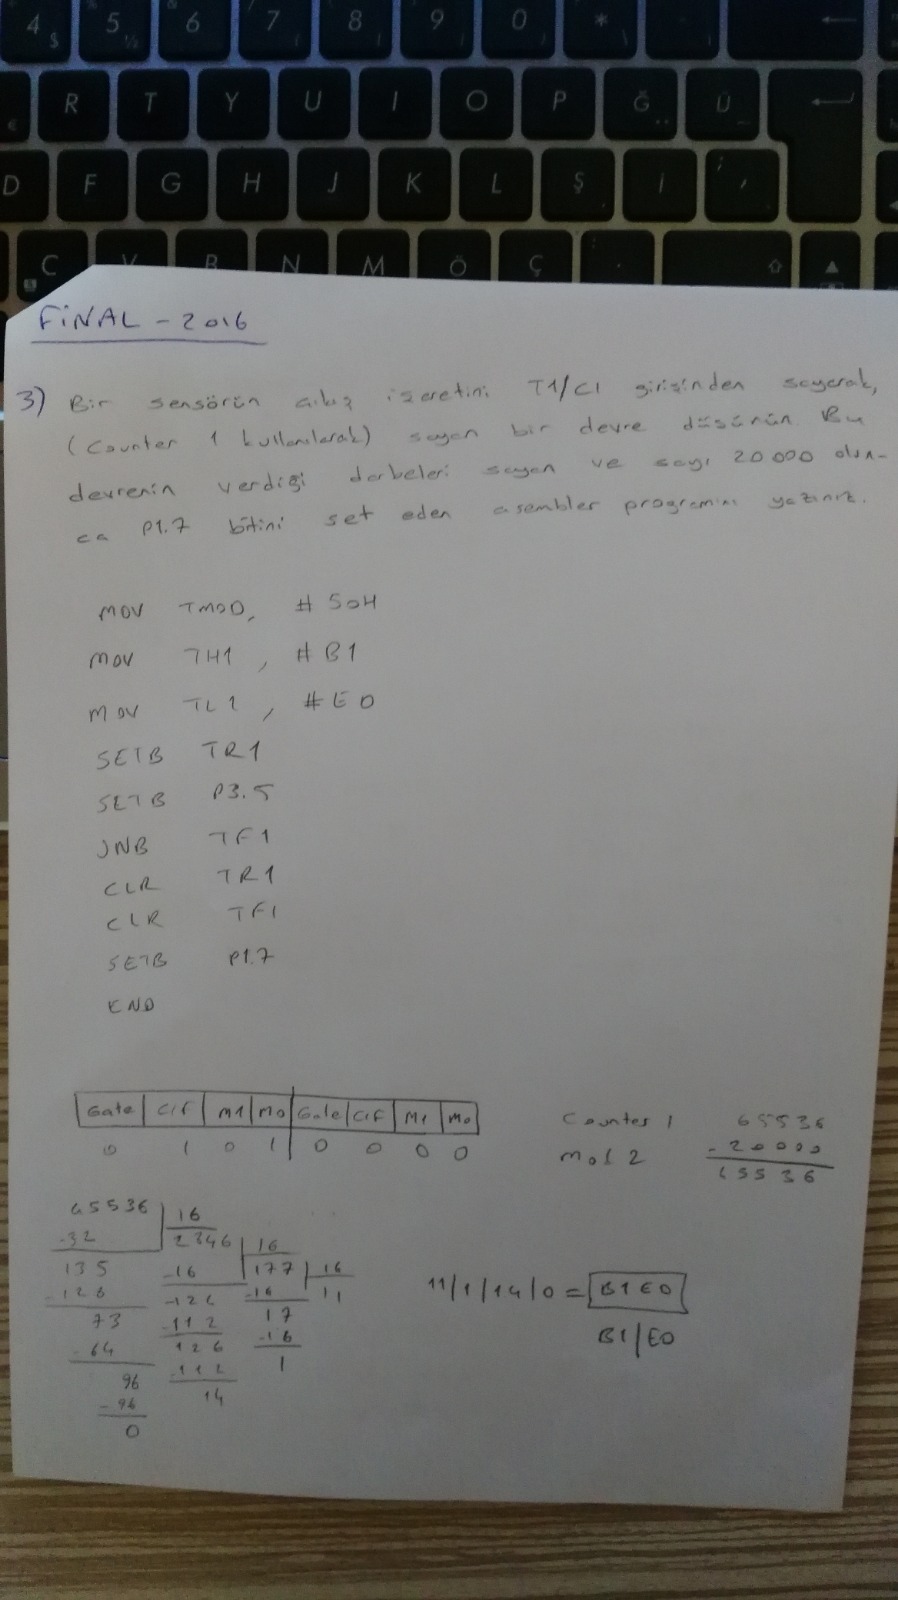 4 $ 5 ½ 6 7 8 9 0 * ←
R T Y U I O P Ğ Ü
D F G H J K L Ş İ ; ,
C V B N M Ö Ç : .
FiNAL - 2016
3) Bir sensörün çıkış işaretini T1/C1 girişinden sayarak,
(Counter 1 kullanılarak) sayan bir devre düşünün. Bu
devrenin verdiği darbeleri sayan ve sayı 20000 olun-
ca P1.7 bitini set eden asembler programını yazınız.
MOV TMOD, # 50H
MOV TH1, # B1
MOV TL1, # E0
SETB TR1
SETB P3.5
JNB TF1
CLR TR1
CLR TF1
SETB P1.7
END
Gate C/F M1 M0 Gate C/F M1 M0
0 1 0 1 0 0 0 0
Counter 1 65536
mod 2 - 20000
45536
45536 16
-32 2846 16
135 -16 177 16
-128 -124 -16 11
73 -112 17
-64 126 -16
96 -112 1
-96 14
0
11/1/14/0 = B1E0
B1/E0